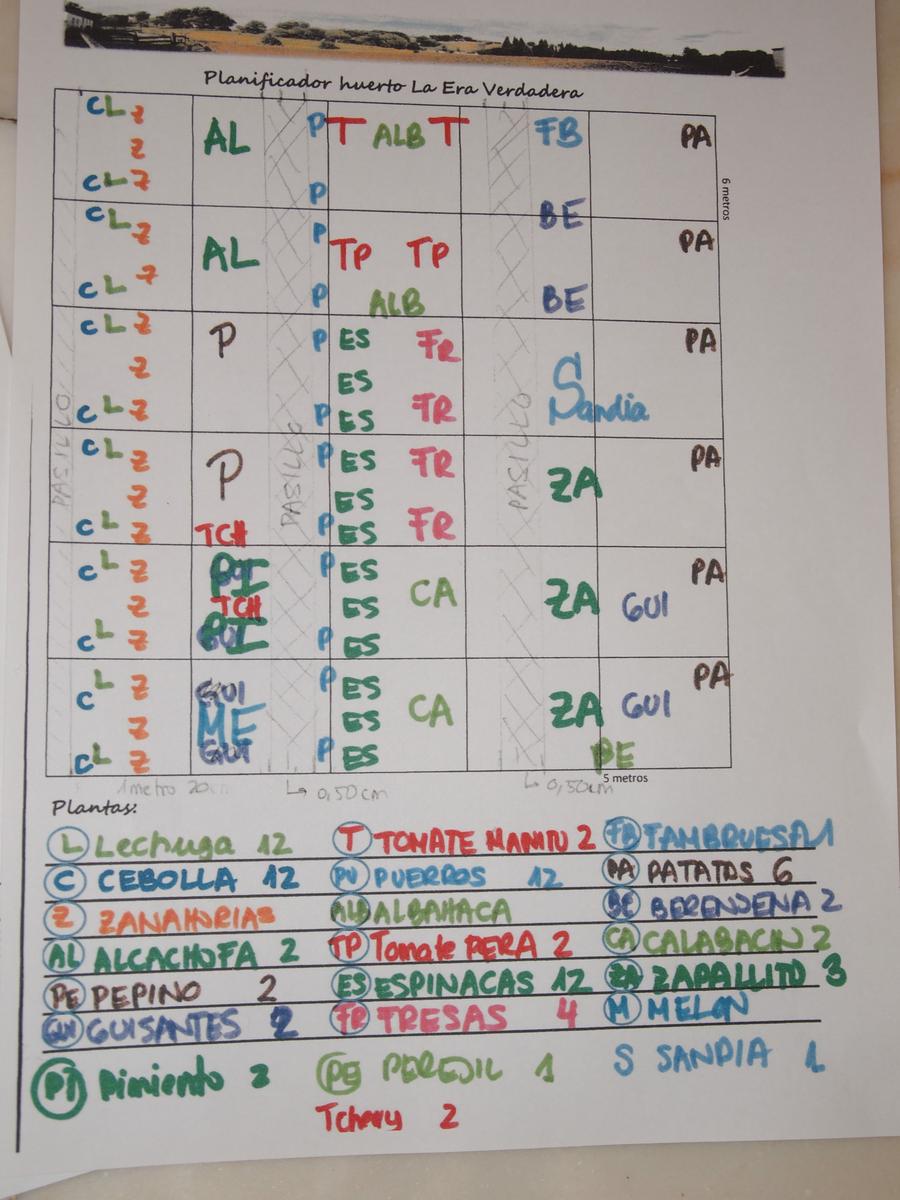 Planificador huerto La Era Verdadera
C L Z AL P T ALB T FB PA
Z
C L Z P BE
6 metros
C L Z AL P TP TP PA
C L Z P ALB BE
C L Z P P ES FR PA
Z ES Sandia
C L Z P ES FR
PASILLO PASILLO PASILLO
C L Z P P ES FR ZA PA
Z ES
C L Z TCH P ES FR
C L Z PI P ES CA ZA PA
Z TCH ES GUI
C L Z PI P ES
C L Z GUI P ES CA ZA GUI PA
Z ME ES
C L Z GUI P ES BE
1 metro 20 0,50cm 0,50cm 5 metros
Plantas:
L Lechuga 12 T TOMATE MANIN 2 FB FAMBRUESA 1
C CEBOLLA 12 PU PUERROS 12 PA PATATAS 6
Z ZANAHORIAS ALB ALBAHACA BE BERENJENA 2
AL ALCACHOFA 2 TP Tomate PERA 2 CA CALABACIN 2
PE PEPINO 2 ES ESPINACAS 12 ZA ZAPALLITO 3
GUI GUISANTES 2 FR FRESAS 4 M MELON
PI Pimiento 2 PE PEREJIL 1 S SANDIA 1
Tchery 2